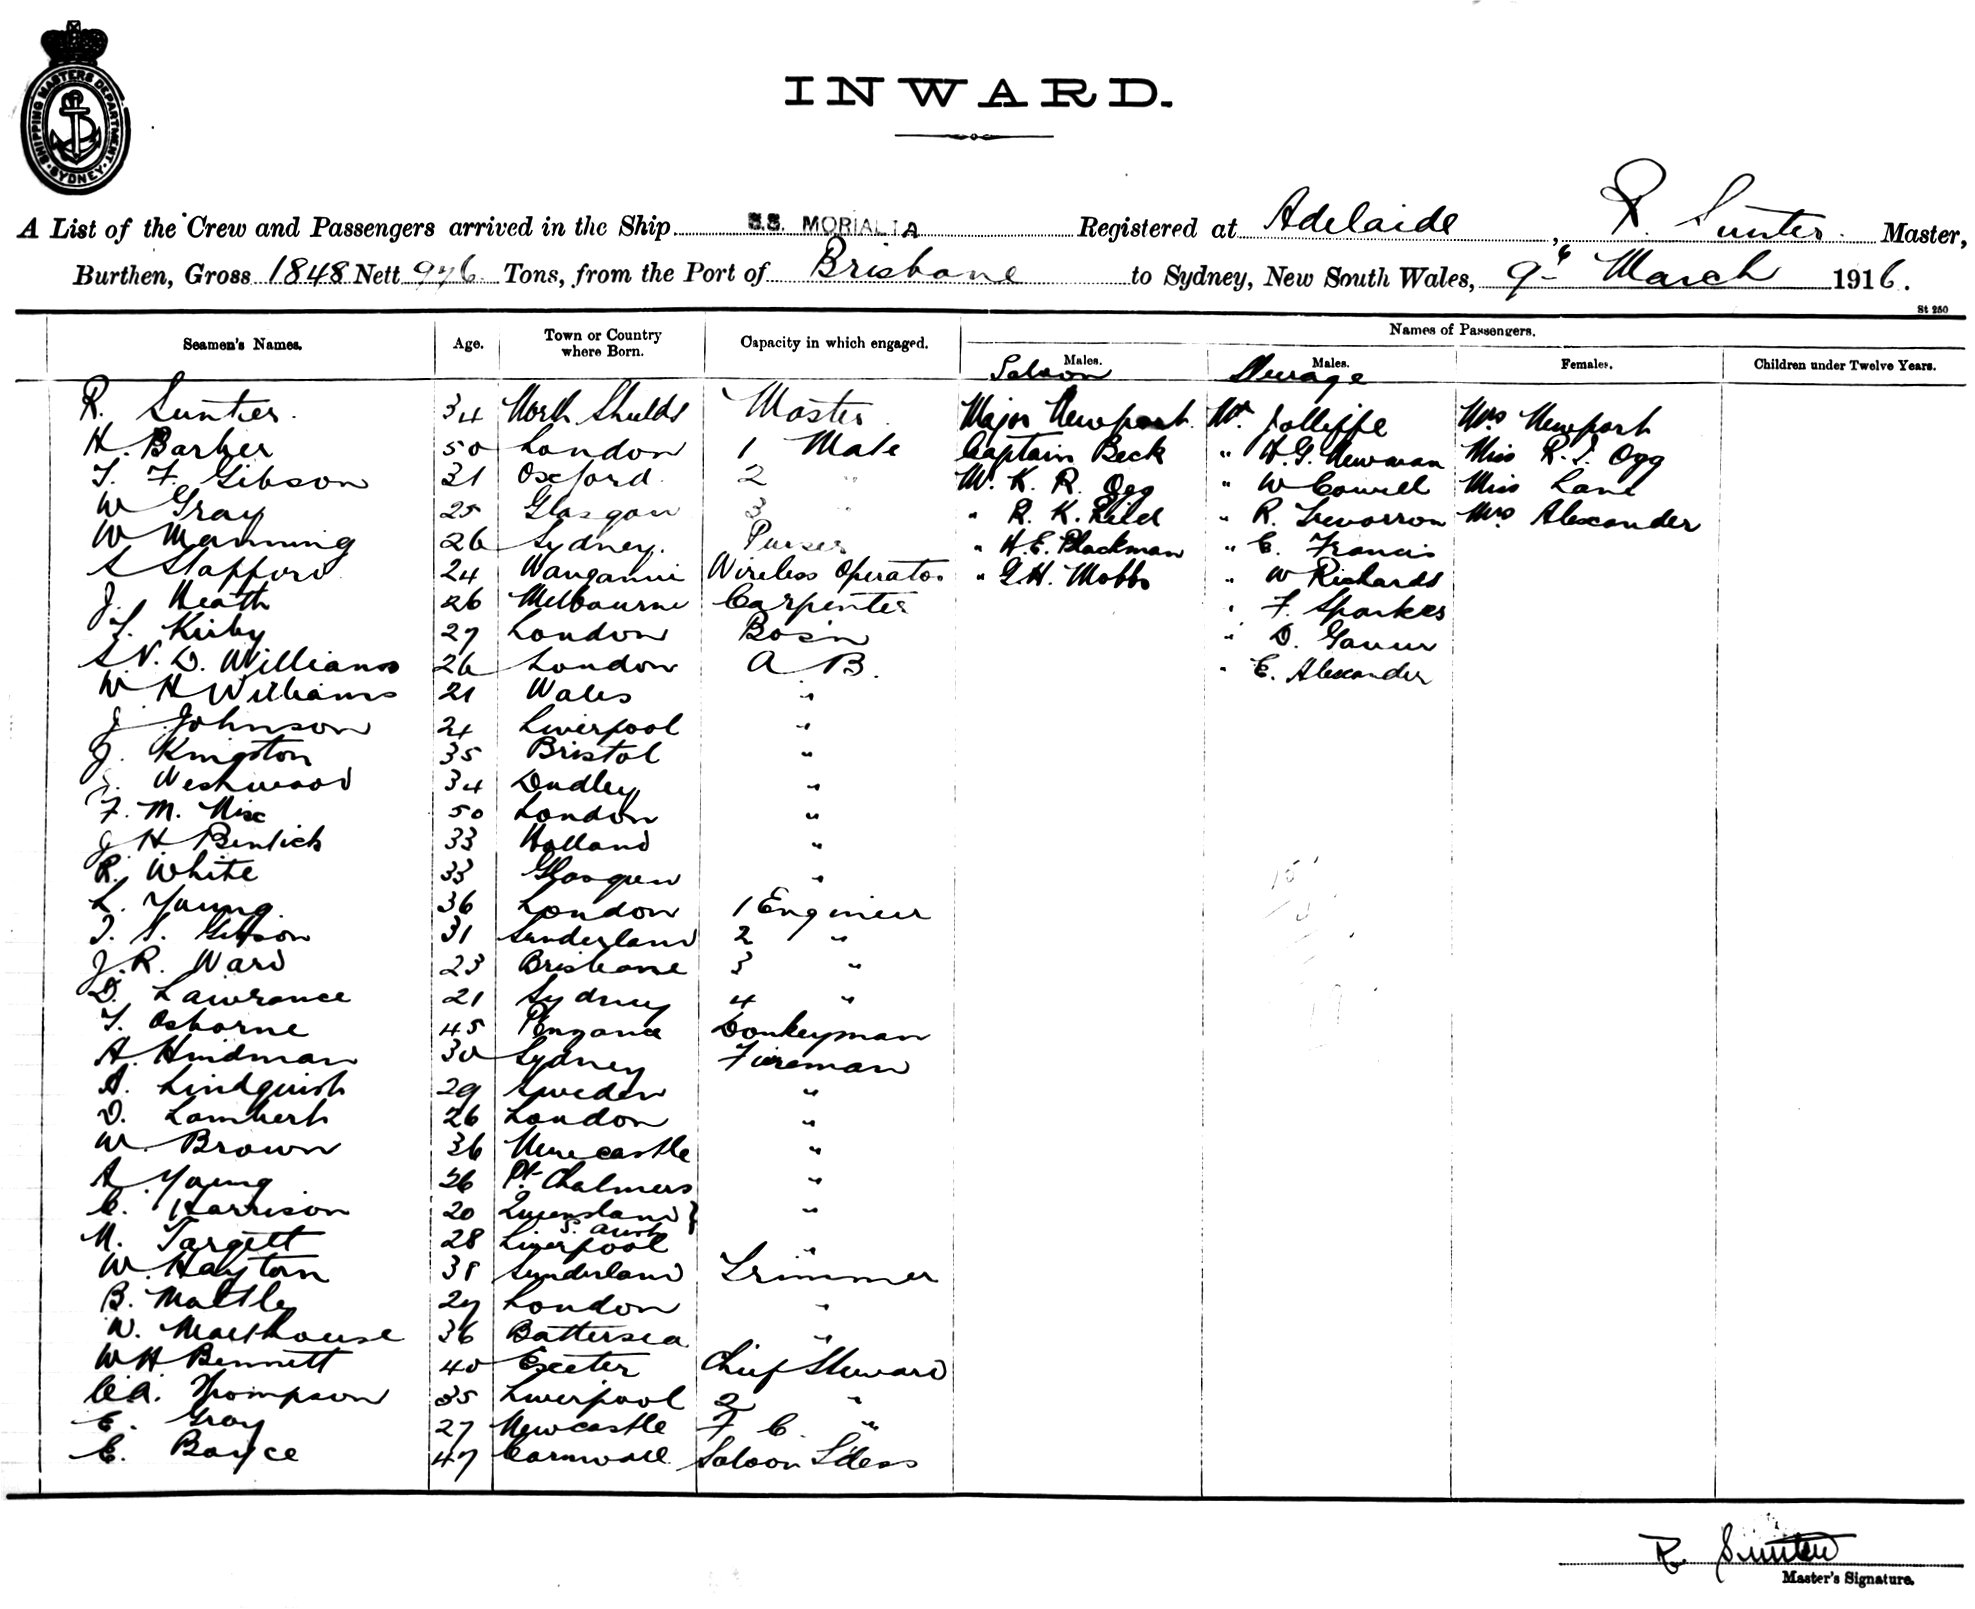 SHIPPING MASTERS DEPARTMENT. SYDNEY.
INWARD.
A List of the Crew and Passengers arrived in the Ship S.S. MORIALTA Registered at Adelaide, R. Sunter. Master,
Burthen, Gross 1848 Nett 976 Tons, from the Port of Brisbane to Sydney, New South Wales, 9th March 1916.
St 250
Names of Passengers.
Seamen's Names. Age. Town or Country where Born. Capacity in which engaged. Males. Males. Females. Children under Twelve Years.
Saloon Steerage
R. Sunter. 34 North Shields Master Major Newport. Mr Jolliffe Mrs Newport
H. Barber 50 London 1 Mate Captain Beck " H.G. Newman Miss R. I. Ogg
T. F. Gibson 31 Oxford 2 " Mr. K. R. Ogg " W Cowell Miss Lane
W Gray 25 Glasgow 3 " " R. K. Reid " R. Trevarrow Mrs Alexander
W Manning 26 Sydney. Purser " H.E. Blackman " C. Francis
S Stafford 24 Wanganui Wireless Operator " G.H. Mobbs " W Richards
J. Heath 26 Melbourne Carpenter " F. Sparkes
T. Kirby 27 London Bosn " D.
S. V. D. Williams 26 London A B. " E. Alexander
W H Williams 21 Wales "
J Johnson 24 Liverpool "
J. Kingston 35 Bristol "
Westwood 34 Dudley "
F. M. Nix 50 London "
J H Bentick 33 Holland "
R. White 33 Glasgow "
L. Young 36 London 1 Engineer
T. S. Gibson 31 Sunderland 2 "
J. R. Ward 23 Brisbane 3 "
D. Lawrance 21 Sydney 4 "
T. Osborne 45 Penzance Donkeyman
A Hindman 30 Sydney Fireman
A. Lindquist 29 Sweden "
D. Lambert 26 London "
W. Brown 36 Newcastle "
A Young 26 Pt Chalmers "
C. Harrison 20 Queensland "
S. Aust
M. Targett 28 Liverpool "
W. Haytorn 38 Sunderland Trimmer
B. Maltby 27 London "
W. Malthouse 36 Battersea "
W H Bennett 40 Exeter Chief Steward
C.A. Thompson 35 Liverpool 2 "
E. Gray 27 Newcastle F C. "
E. Boyce 47 Cornwall Saloon S'dess
R. Sunter
Master's Signature.